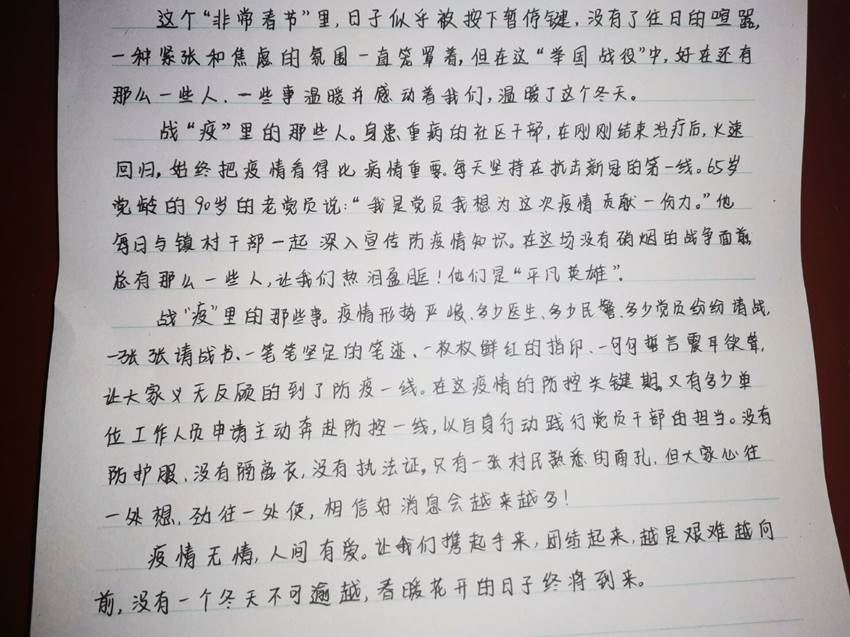 这个“非常春节”里,日子似乎被按下暂停键,没有了往日的喧嚣,
一种紧张和焦虑的氛围一直笼罩着,但在这“举国战役”中,好在还有
那么一些人、一些事温暖并感动着我们,温暖了这个冬天。
战“疫”里的那些人。身患重病的社区干部,在刚刚结束治疗后,火速
回归,始终把疫情看得比病情重要。每天坚持在抗击新冠的第一线。65岁
党龄的90岁的老党员说:“我是党员我想为这次疫情贡献一份力。”他
每日与镇村干部一起深入宣传防疫情知识。在这场没有硝烟的战争面前,
总有那么一些人,让我们热泪盈眶!他们是“平凡英雄”。
战“疫”里的那些事。疫情形势严峻、多少医生、多少民警、多少党员纷纷请战,
一张张请战书、一笔笔坚定的笔迹、一枚枚鲜红的指印、一句句誓言震耳欲聋,
让大家义无反顾的到了防疫一线。在这疫情的防控关键期,又有多少单
位工作人员申请主动奔赴防控一线,以自身行动践行党员干部的担当。没有
防护服、没有隔离衣,没有执法证,只有一张村民熟悉的面孔,但大家心往
一处想,劲往一处使,相信好消息会越来越多!
疫情无情,人间有爱。让我们携起手来,团结起来,越是艰难越向
前,没有一个冬天不可逾越,春暖花开的日子终将到来。